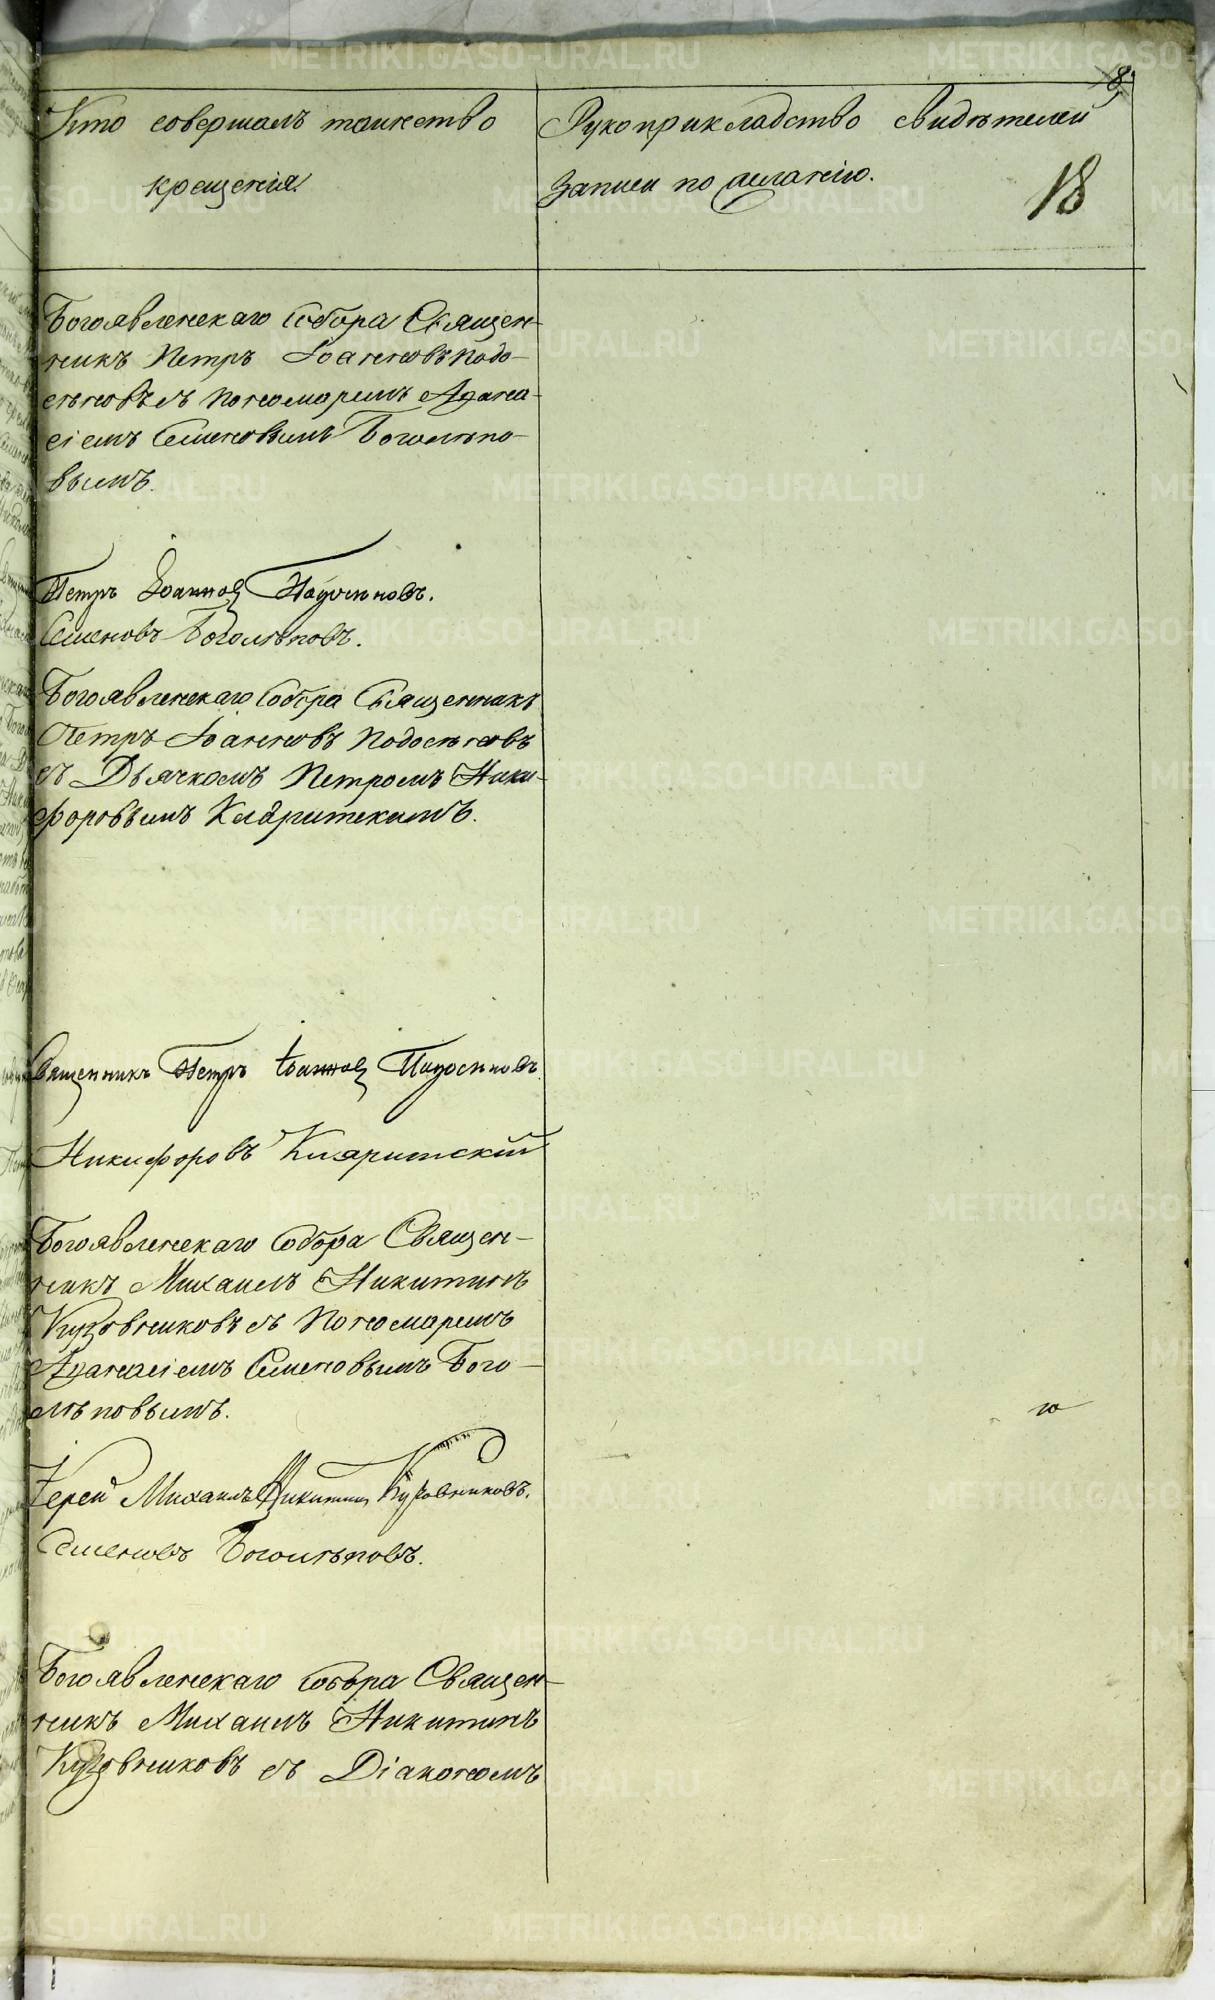 Кто совершалъ таинство
крещенія.
Рукоприкладство свидѣтелей
записи по желанію.
18
Богоявленскаго Собора Священ-
никъ Петръ Іоанновъ Подо-
сѣновъ съ Пономаремъ Афана-
сіемъ Семеновымъ Боголѣпо-
вымъ.
Петръ Іоанновъ Подосѣновъ.
Семеновъ Боголѣповъ.
Богоявленскаго Собора Священникъ
Петръ Іоанновъ Подосѣновъ
съ Дьячкомъ Петромъ Ники-
форовымъ
Священникъ Петръ Іоанновъ Подосѣновъ.
Никифоровъ
Богоявленскаго Собора Священ-
никъ Михаилъ Никитинъ
Кузовниковъ съ Пономаремъ
Афанасіемъ Семеновымъ Бого-
лѣповымъ.
Іерей Михаилъ Никитинъ Кузовниковъ.
Семеновъ Боголѣповъ.
Богоявленскаго Собора Священ-
никъ Михаилъ Никитинъ
Кузовниковъ съ Діакономъ
METRIKI.GASO-URAL.RU